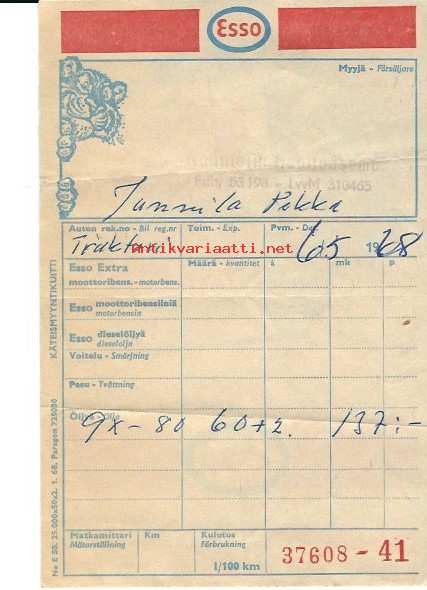 Esso
Myyjä - Försäljare
Puh. 55196 - LvvM 310465
Junnila Pekka
Auton rek.no - Bil reg.nr Toim. - Exp. Pvm. - Dat.
Traktori 6.5 1968
antikvariaatti.net
Esso Extra Määrä - kvantitet à mk p
moottoribens. - motorbens.
Esso moottoribensiiniä
motorbensin
Esso dieselöljyä
dieselolja
Voitelu - Smörjning
Pesu - Tvättning
Öljyä - Olja
9x-80 60+2. 137:-
Matkamittari Km Kulutus
Mätarställning Förbrukning
1/100 km
37608 - 41
KÄTEISMYYNTIKUITTI
No E 38. 25.000x50x2. 1. 68. Paragon 728030